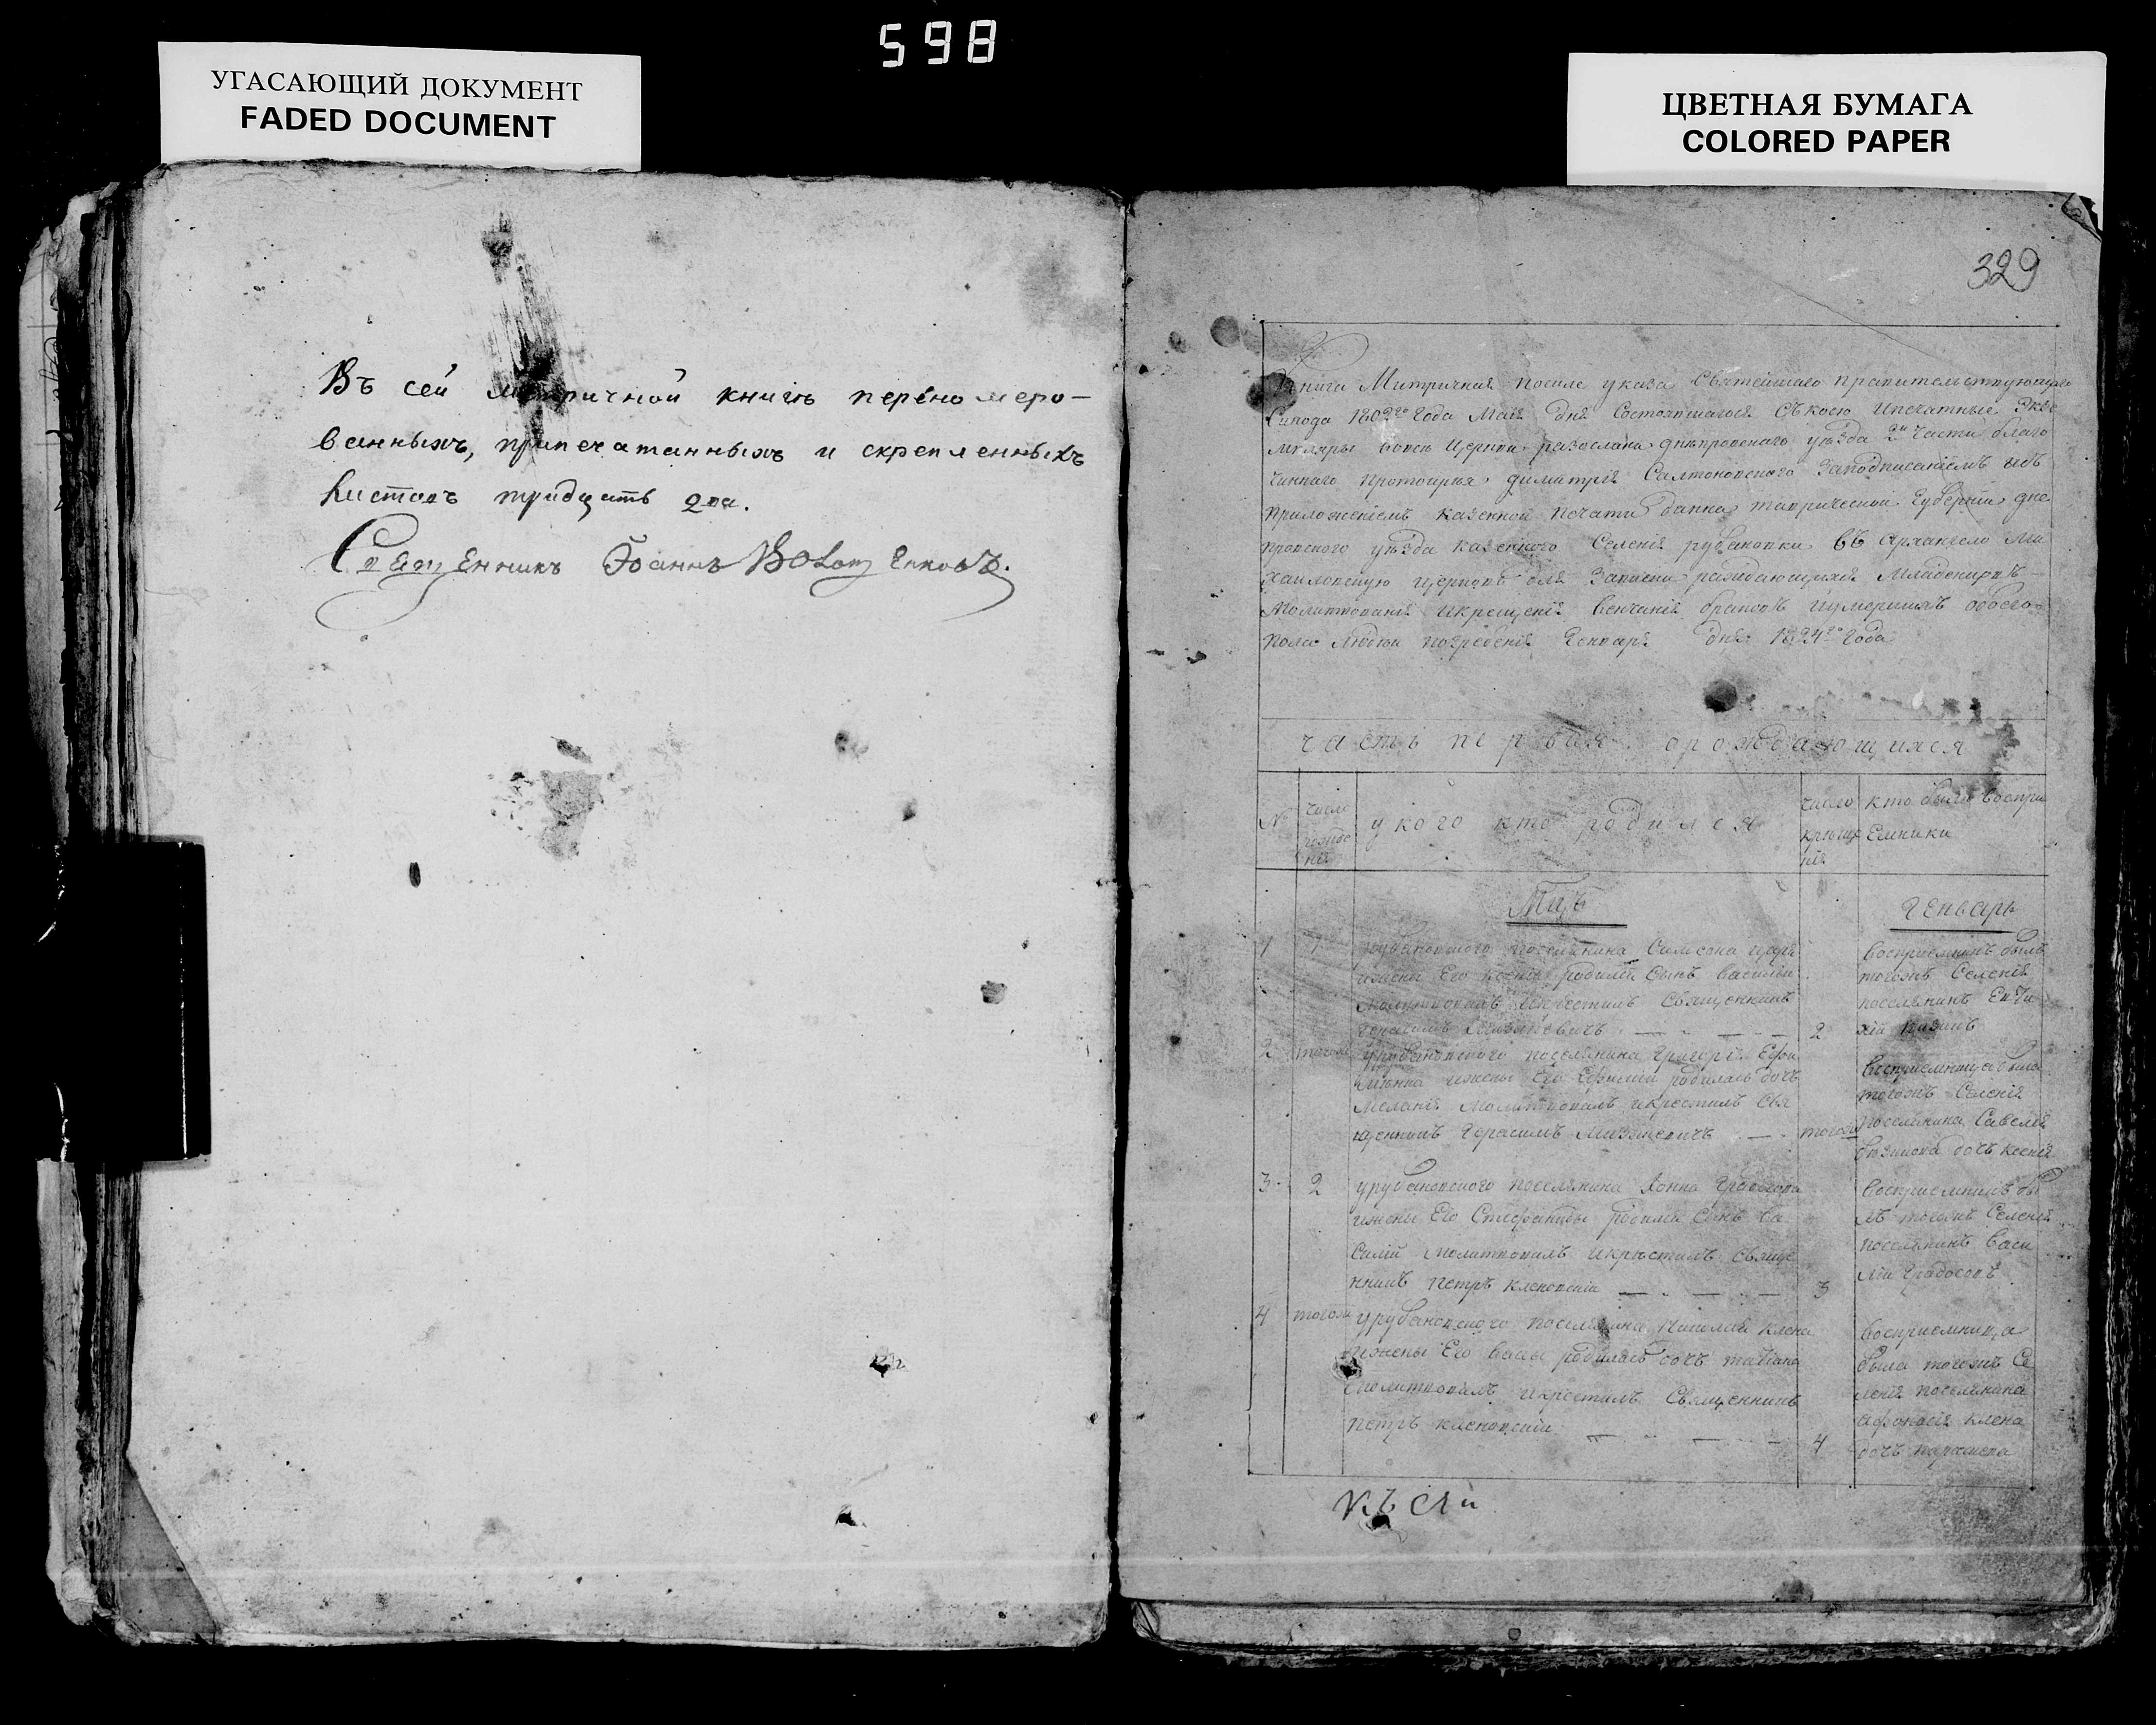 598
УГАСАЮЩИЙ ДОКУМЕНТ
FADED DOCUMENT
ЦВЕТНАЯ БУМАГА
COLORED PAPER
Въ сей метричной книгѣ перено меро-
ванныхъ, припечатанныхъ и скрепленныхъ
листовъ тридцать два.
Священникъ Іоаннъ
329
Книга Митричная после указа Святейшаго правительствующаго
Синода 1802го Года Маія дня Состоявшагося съ коею ипечатные Экзе
мпляры вовси Церкви разосланы днѣпровскаго уѣзда 2й Части благо
чиннаго протоиерея Димитрія Салтоновского Заподписаніемъ исъ
приложеніемъ казенной печати данна таврической Губерніи дне
провского уѣзда казенного Селенія рубановки въ Архангело Ми
хайловскую Церковь для Записки раждающихся Младенцовъ
Молитвованія икрещенія венчанія браковъ иумершихъ обоего
пола людей погребенія Генваря дня 1824го года
часть первая ораждающихся
№
число
рожде
нія
укого кто родился
число
крѣще
нія
кто были воспри
Емники
Мцъ
Генварь
1 1 рубановского поселянина Самсона
ижены Его родился Сынъ василій
Молитвовалъ икрестилъ Священникъ
герасимъ 2
воспріемникъ былъ
тогожъ Селенія
поселянинъ
2 тогож урубановского поселянина григорія
ижены Его родилась дочъ
Меланія Молитвовалъ икрестилъ Свя
щенникъ Герасимъ тогож
воспріемница была
тогожъ Селенія
поселянина Савелія
дочъ ксенія
3 2 урубановского поселянина
ижены Его Стефаниды родился Сынъ ва
силій Молитвовалъ икрѣстилъ Свяще
нникъ петръ кленовскій 3
воспріемникъ бы
лъ тогожъ Селенія
поселянинъ васи
лій
4 тогож урубановского поселянина Николая клена
ижены Его васы родилась дочъ татіана
Молитвовалъ икрестилъ Священникъ
петръ кленовскій 4
воспріемница
была тогожъ Се
ленія поселянина
афонасія клена
дочъ